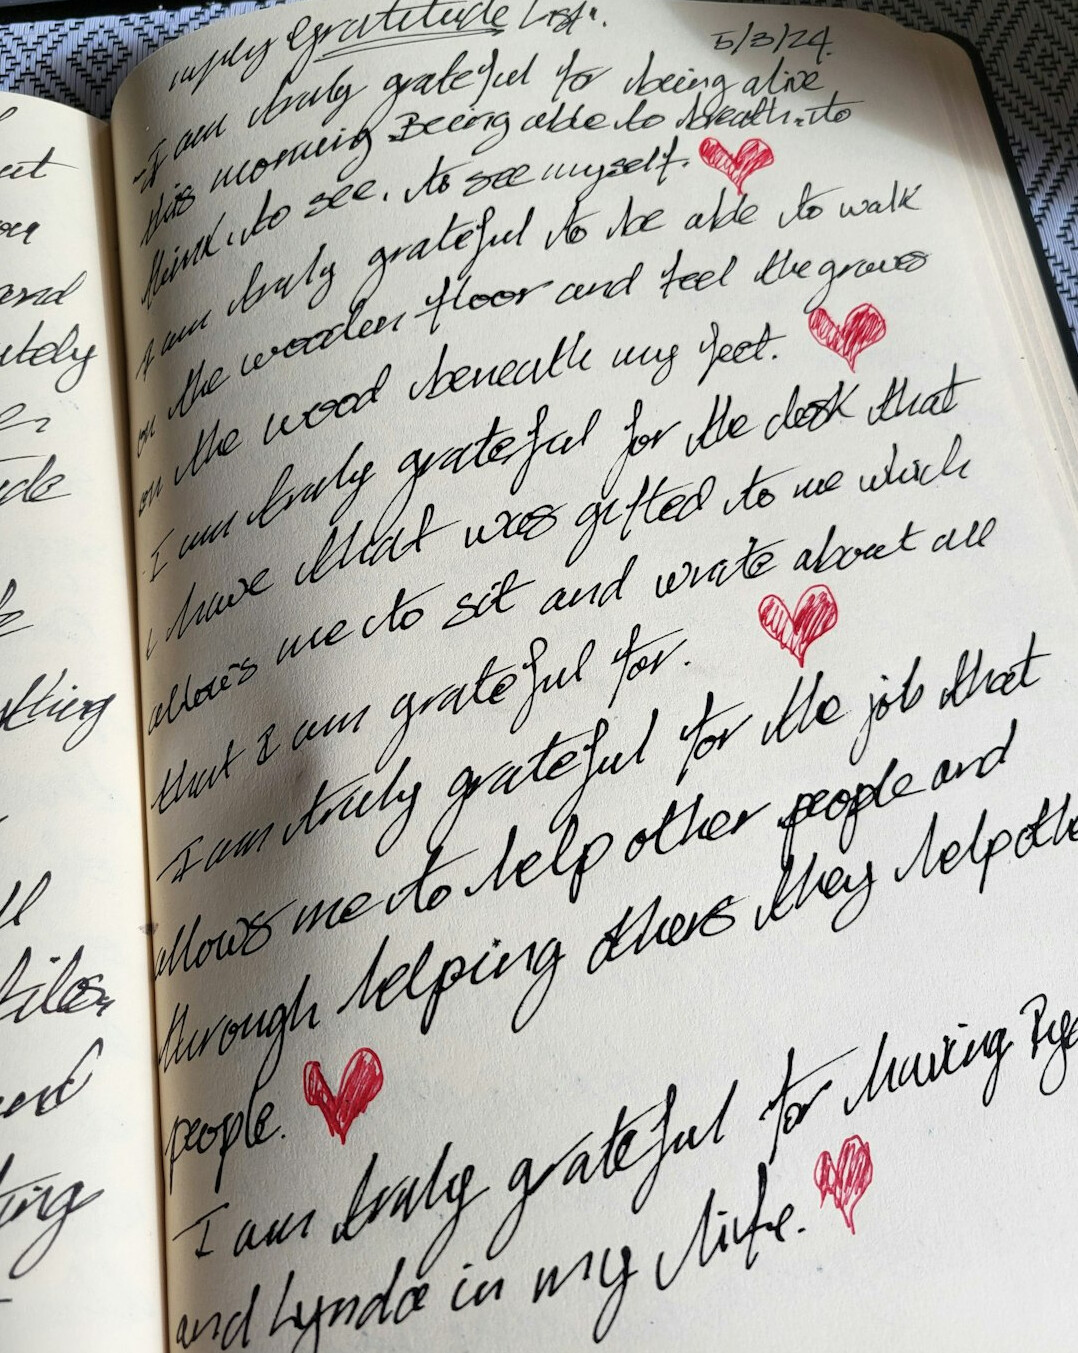 Gratitude List.
5/3/24.
I am truly grateful for being alive
this morning Being able to breath. to
think, to see, to see myself.
I am truly grateful to be able to walk
on the wooden floor and feel the groves
on the wood beneath my feet.
I am truly grateful for the desk that
I have that was gifted to me which
allows me to sit and write about all
that I am grateful for.
I am truly grateful for the job that
allows me to help other people and
through helping others they help othe
people.
I am truly grateful for having
and Lynda in my life.
and
thing